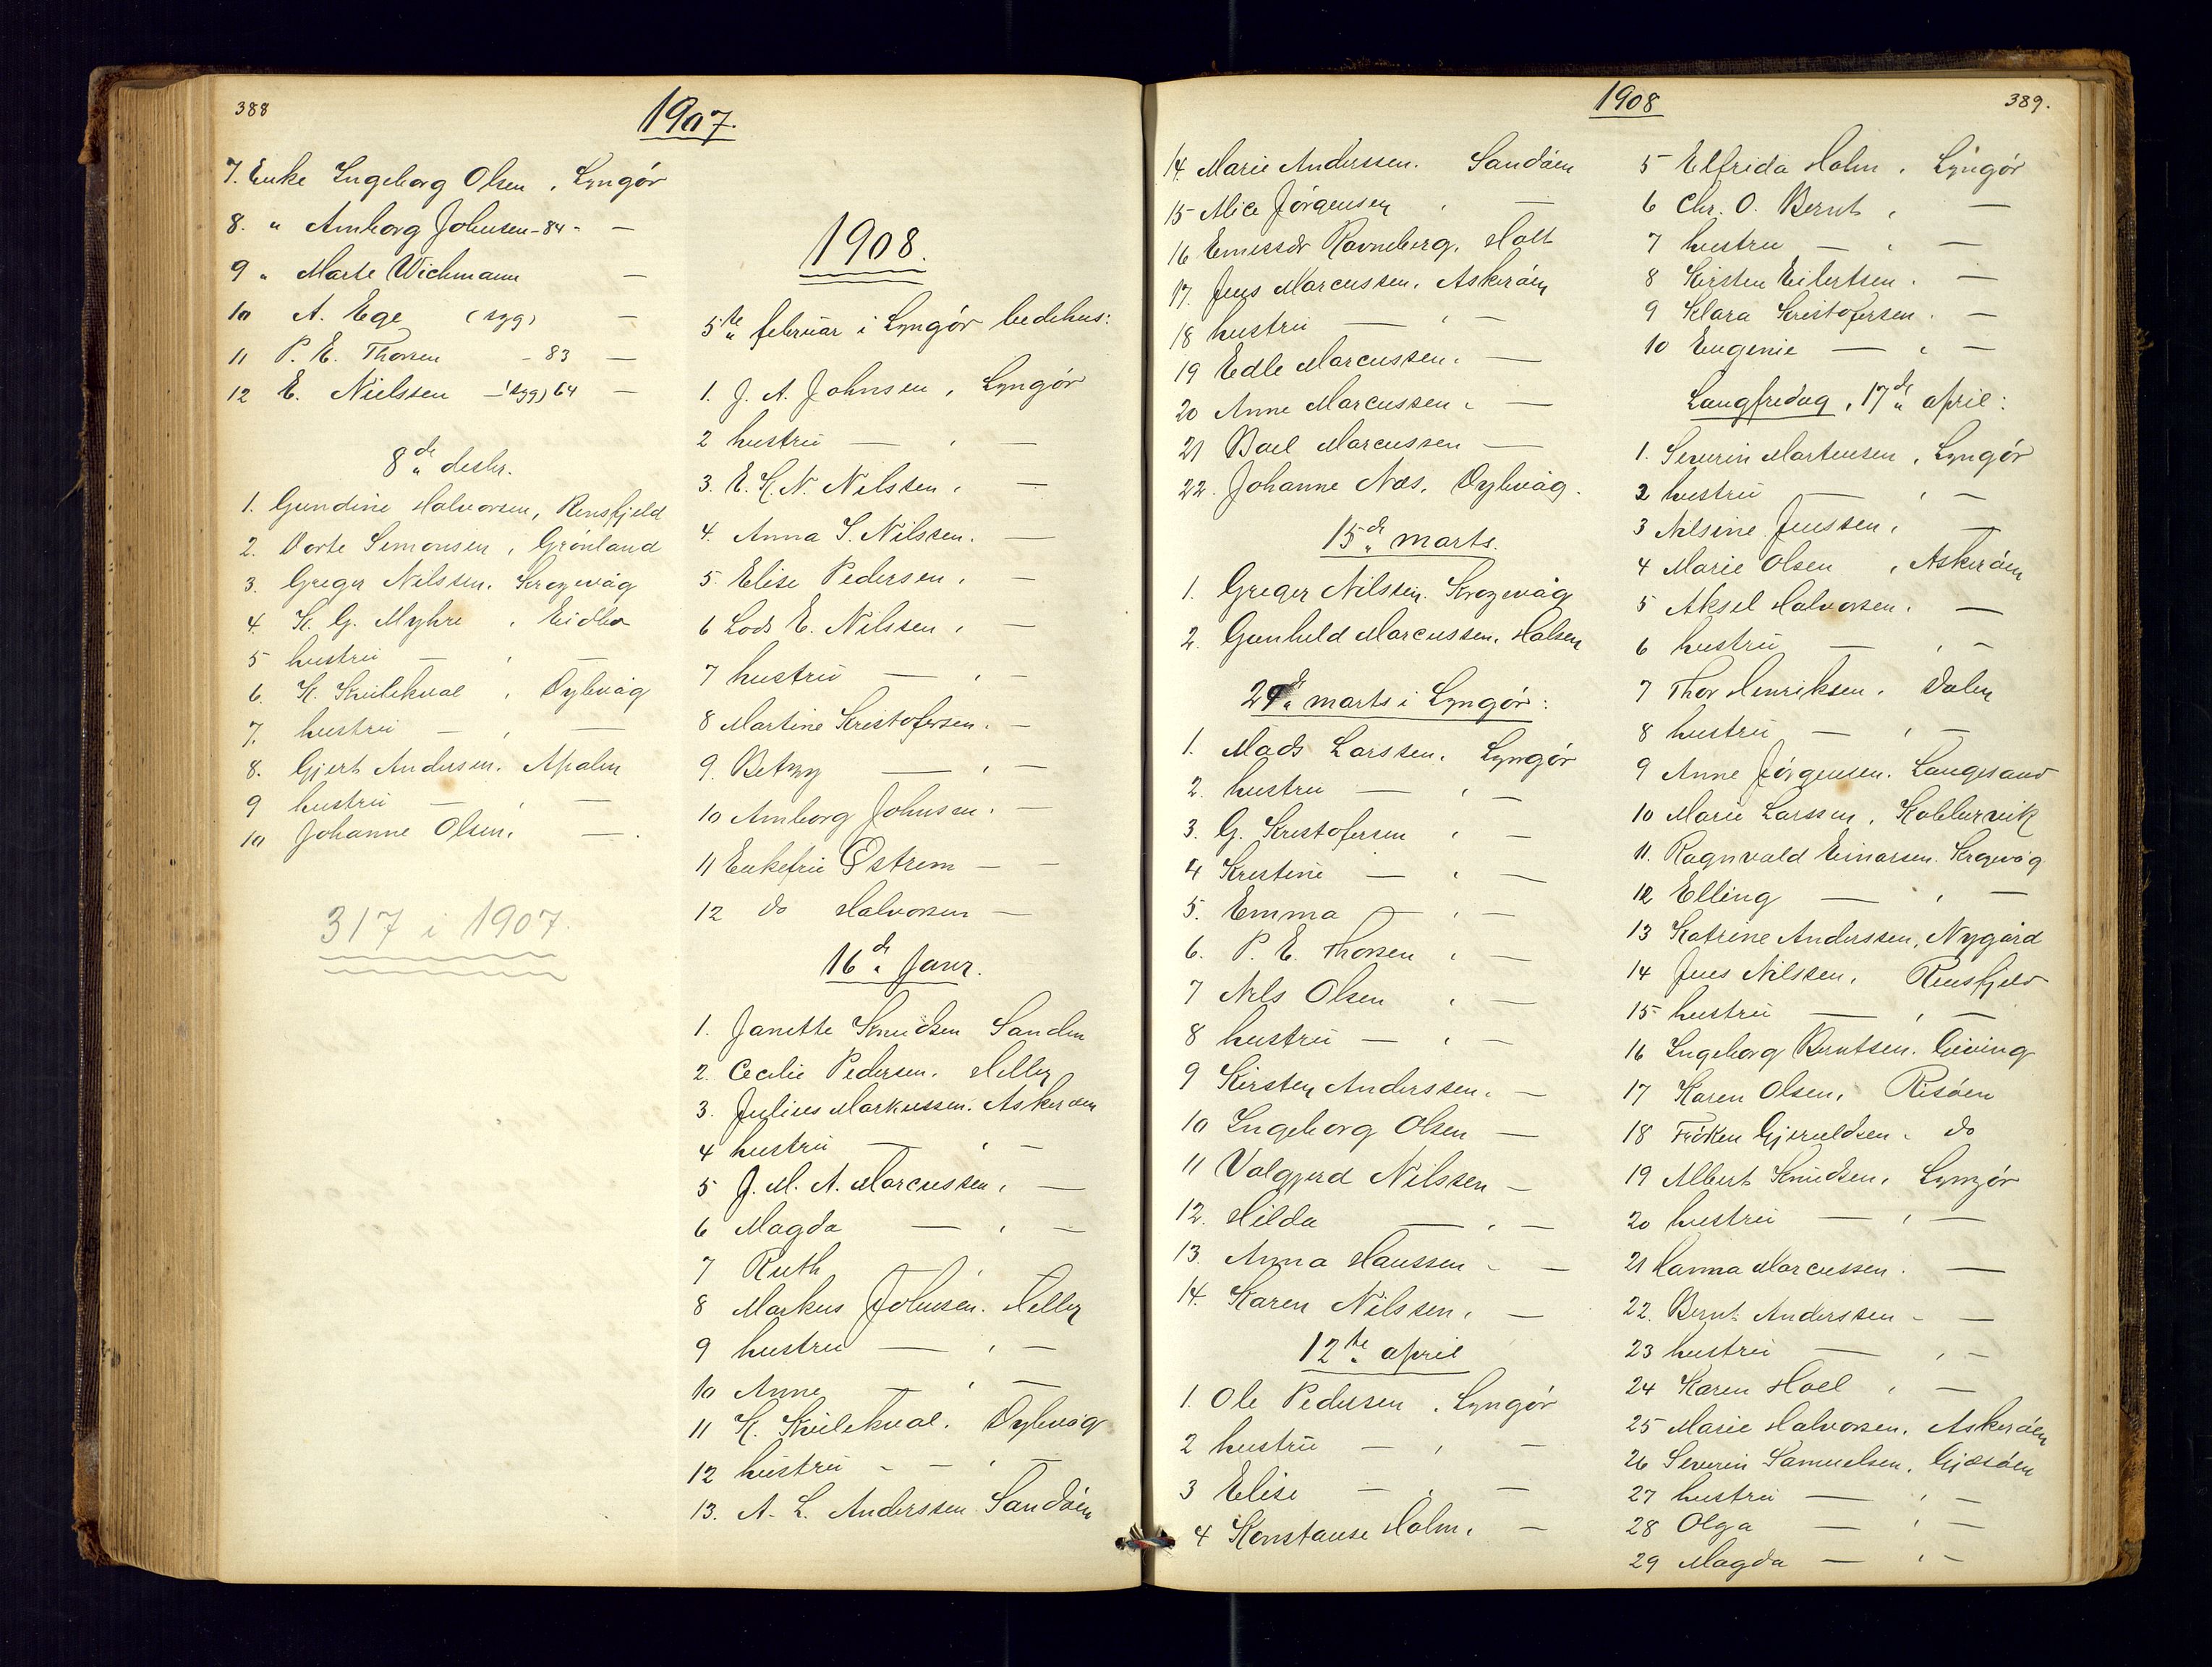 388
1907.
7. Enke Ingeborg Olsen, Lyngør
8. " Amborg Johnsen - 84 - —
9 " Marte Wichmann —
10 A. Ege (syg) —
11 P. E. Thorsen - 83 —
12 E. Nielssen — (syg) 64 —
8de desbr.
1. Gundine Halvorsen, Rensfjeld
2. Dorte Simonsen, Grønland
3. Greger Nilssen. Krogevåg
4. K. G. Myhre, Eidbo
5 hustru — , —
6. K. Kvilekval, Dybvåg
7. hustru — , —
8. Gjert Andersen. Apalen
9 hustru — , —
10 Johanne Olsen. —.
317 i 1907.
1908.
5te februar i Lyngør bedehus:
1. J. A. Johnsen, Lyngør
2 hustru — , —
3. E. K. N. Nilssen, —
4. Anna S. Nilssen. —
5. Elise Pedersen, —
6 Lods E. Nilssen, —
7 hustru — , —
8 Martine Kristofersen. —
9. Betzy — , —
10 Amborg Johnsen. —
11 Enkefru Østrem — —
12 do Halvorsen —
16de Janr.
1. Janette Knudsen Sanden
2. Cecilie Pedersen. Hellen
3. Julius Markussen. Askerøen
4 hustru — , —
5 J. M. A. Marcussen, —
6 Magda — , —
7 Ruth — , —
8 Markus Johnsen. Hellen
9 hustru — , —
10 Anne — , —
11 K. Kvilekval. Dybvåg
12 hustru - — , —
13. A. L. Anderssen Sandøen
1908
389.
14. Marie Anderssen. Sandøen
15 Alice Jørgensen , —
16 Emissær Ravneberg, Holt
17. Jens Marcussen. Askerøen
18 hustru — , —
19 Edle Marcussen. —
20 Anne Marcussen, —
21 Boel Marcussen —
22. Johanne Næs. Dybvåg.
15de marts.
1. Greger Nilssen. Krogevåg
2. Gunhild Marcussen. Halsen
29de marts i Lyngør:
1. Mads Larssen. Lyngør
2. hustru — , —
3. G. Kristofersen , —
4 Kristine — , —
5. Emma — , —
6. P. E. Thorsen , —
7 Nils Olsen , —
8 hustru — , —
9 Kirsten Anderssen. —
10 Ingeborg Olsen —
11 Valgjerd Nilssen —
12. Hilda — , —
13. Anna Hanssen - —
14. Karen Nilssen, —
12te april
1. Ole Pedersen, Lyngør
2 hustru — , —
3 Elise — , —
4 Konstanse Holm, —
5 Elfrida Holm, Lyngør
6 Chr. O. Bernt, —
7 hustru — , —
8 Kirsten Eilertsen. —
9 Klara Kristofersen. —
10 Eugenie — , —
Langfredag, 17de april:
1. Severin Martensen, Lyngør
2 hustru — , —
3 Nilsine Jenssen, —
4 Marie Olsen, Askerøen
5 Aksel Halvorsen. —
6 hustru — , —
7 Thor Henriksen. Dalen
8 hustru — , —
9 Anne Jørgensen. Langesand
10 Marie Larssen, Kobbervik
11. Ragnvald Einarsen. Krogevåg
12 Elling — , —
13 Katrine Anderssen, Nygård
14 Jens Nilssen. Rensfjeld
15 hustru — , —
16 Ingeborg Berntsen. Gieving
17 Karen Olsen, Risøen
18 Frøken Gjeruldsen. do
19 Albert Knudsen, Lyngør
20 hustru — , —
21 Hanna Marcussen. —
22. Bernt Anderssen - —
23 hustru — , —
24 Karen Hoel , —
25 Marie Halvorsen. Askerøen
26 Severin Samuelsen. Gjæsøen
27 hustru — , —
28 Olga — , —
29 Magda — , —